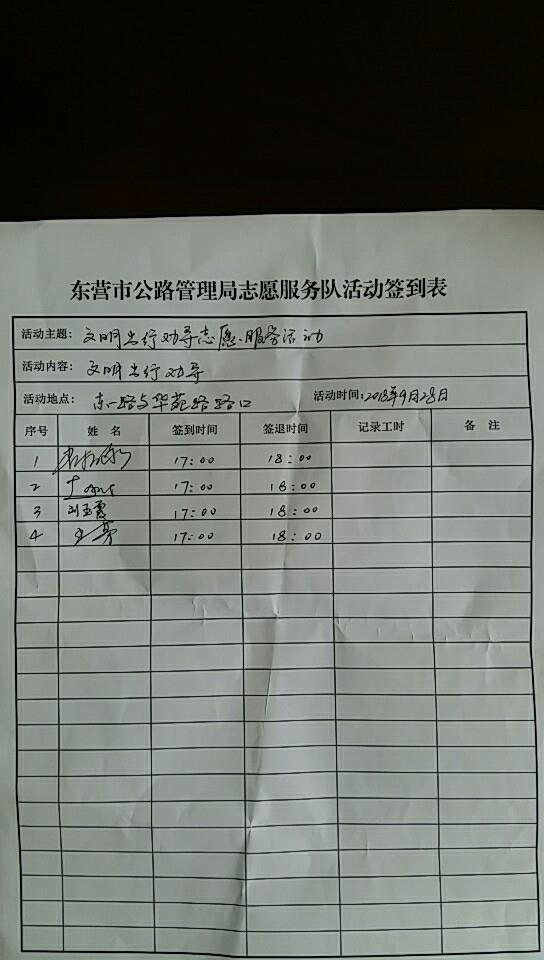 东营市公路管理局志愿服务队活动签到表
活动主题: 文明出行劝导志愿服务活动
活动内容: 文明出行劝导
活动地点: 东一路与华苑路路口 活动时间:2018年9月28日
序号 姓 名 签到时间 签退时间 记录工时 备 注
1 17:00 18:00
2 17:00 18:00
3 刘玉霞 17:00 18:00
4 17:00 18:00